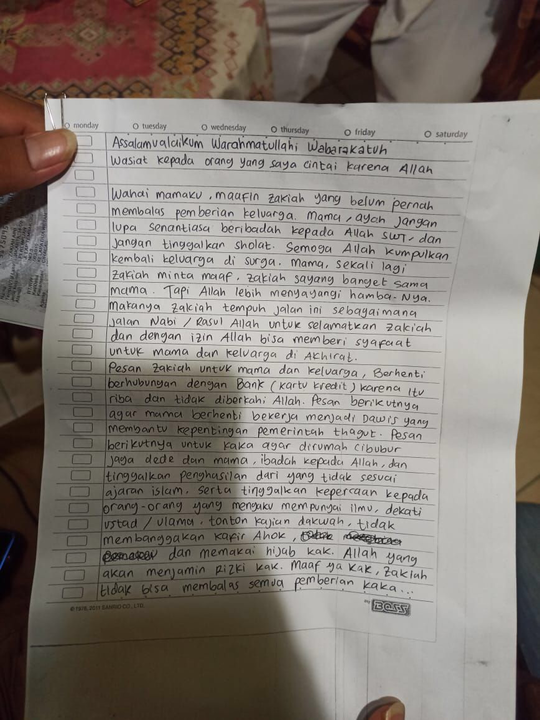 monday tuesday wednesday thursday friday saturday
Assalamualaikum Warahmatullahi Wabarakatuh
Wasiat kepada orang yang saya cintai karena Allah
Wahai mamaku, maafin zakiah yang belum pernah
membalas pemberian keluarga. Mama, ayah jangan
lupa senantiasa beribadah kepada Allah swt, dan
jangan tinggalkan sholat. Semoga Allah kumpulkan
kembali keluarga di surga. Mama, sekali lagi
zakiah minta maaf. zakiah sayang banget sama
mama. Tapi Allah lebih menyayangi hamba-Nya.
makanya zakiah tempuh jalan ini sebagaimana
jalan Nabi / Rasul Allah untuk selamatkan zakiah
dan dengan izin Allah bisa memberi syafaat
untuk mama dan keluarga di Akhirat.
Pesan zakiah untuk mama dan keluarga, Berhenti
berhubungan dengan Bank (kartu kredit) karena itu
riba dan tidak diberkahi Allah. Pesan berikutnya
agar mama berhenti bekerja menjadi Dawis yang
membantu kepentingan pemerintah thagut. Pesan
berikutnya untuk kaka agar dirumah cibubur
jaga dede dan mama, ibadah kepada Allah, dan
tinggalkan penghasilan dari yang tidak sesuai
ajaran islam. Serta tinggalkan kepercaan kepada
orang-orang yang mengaku mempunyai ilmu, dekati
ustad / ulama, tonton kajian dakwah, tidak
membanggakan kafir Ahok,
dan memakai hijab kak. Allah yang
akan menjamin Rizki kak. Maaf ya kak, zakiah
tidak bisa membalas semua pemberian kaka...
SANRIO CO., LTD.
BOSS